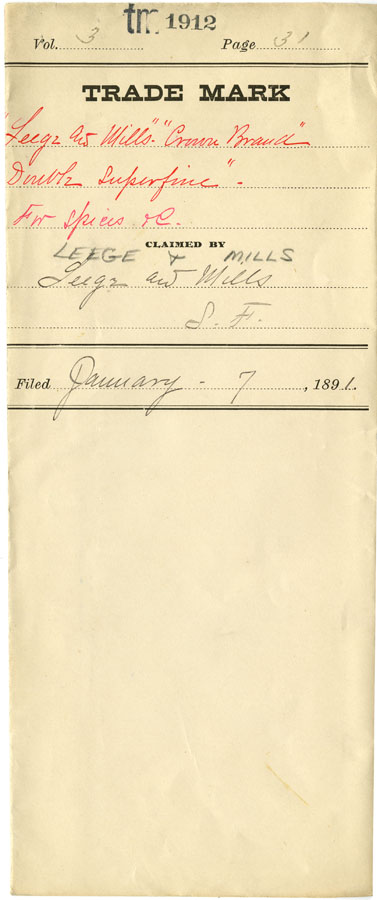 tm 1912
Vol. 3 Page 31
TRADE MARK
"Leege and Mills" "Crown Brand"
Double Superfine" -
For Spices &C.
CLAIMED BY
LEEGE & MILLS
Leege and Mills
S. F.
Filed January - 7, 1891.